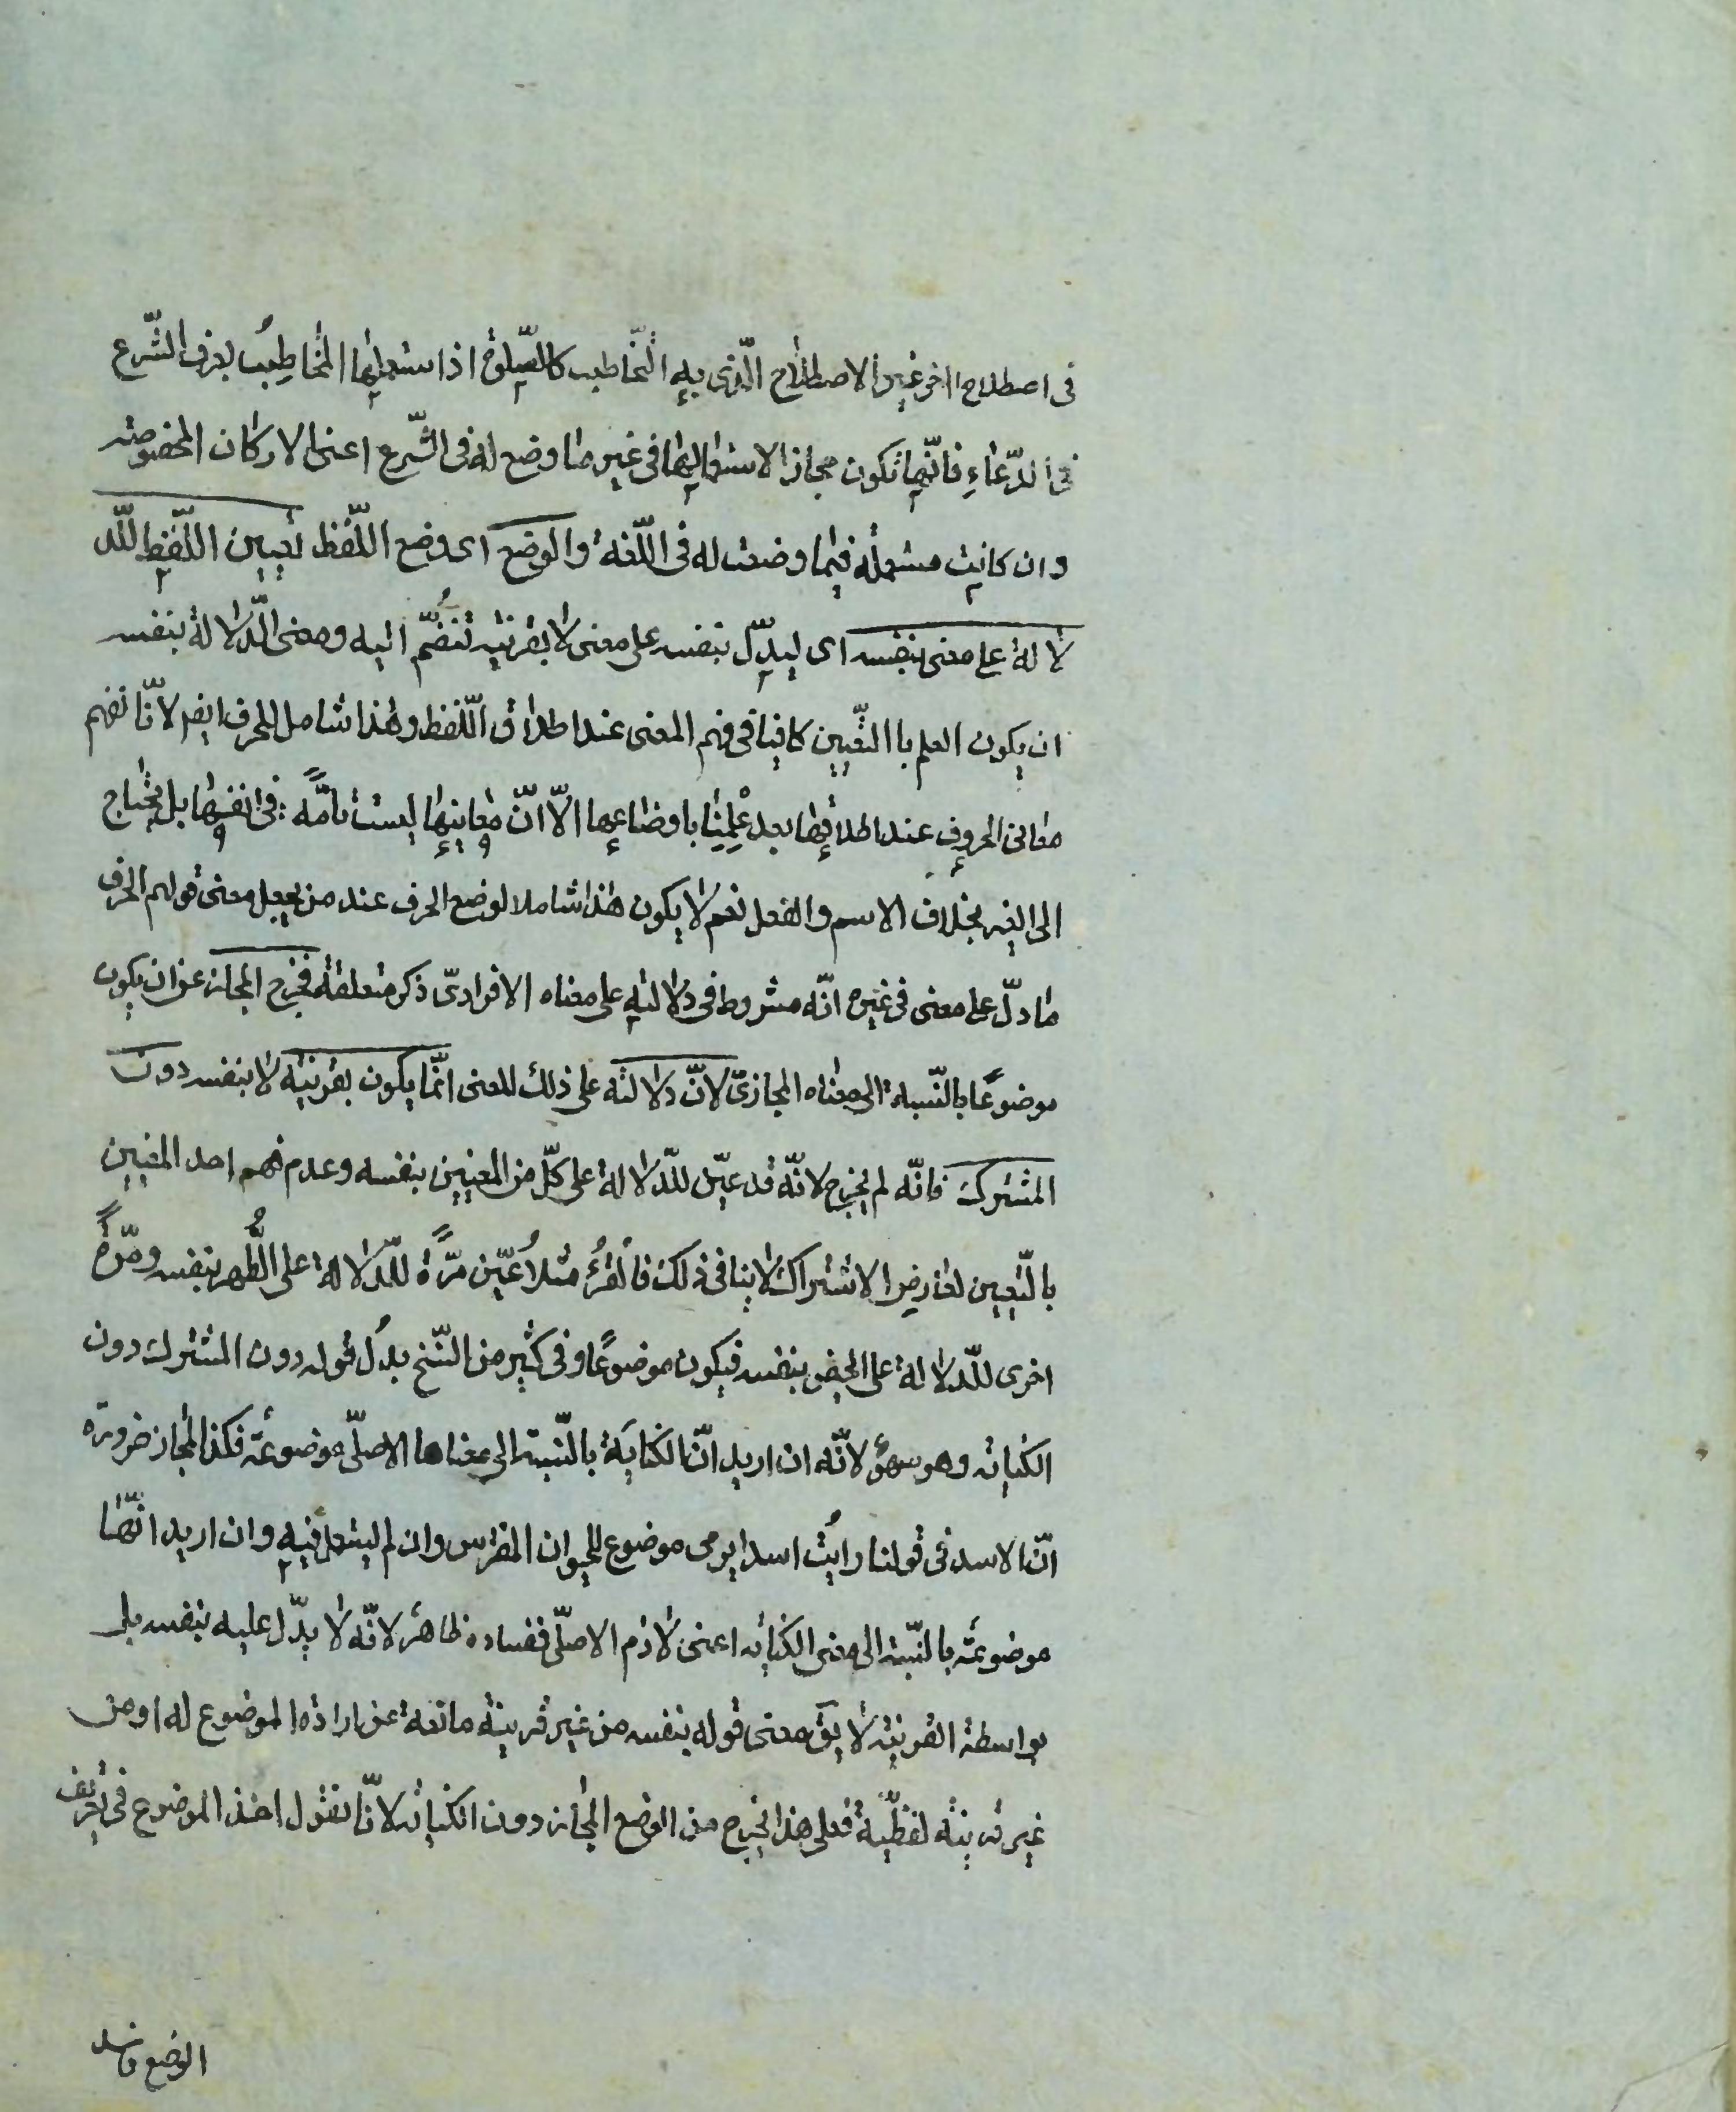 فى اصطلاح اخر غير الاصطلاح الّذى به التّخاطب كالصّلوة اذا استعملها المخاطِب بعرف الشّرع
فى الدّعاءِ فانّها تكون مجازا لاستعمالها فى غير ما وضع له فى الشّرع اعنى الاركان المخصوصة
وان كانت مستعملة فيما وضعت له فى اللّغة والوضع اى وضع اللّفظ تعيين اللّفظ للّد
لالة على معنى بنفسه اى ليدلّ بنفسه على معنى لا بقرينة تنضمّ اليه ومعنى الدّلالة بنفسه
ان يكون العلم با التّعيين كافيا فى فهم المعنى عند اطلاق اللّفظ وهذا شامل للحرف ايضر لانّا نفهم
معانى الحروف عند اطلاقها بعد عِلْمِنا باوضاعها الاّ انّ معانيها ليست تامّةً فى انفسها بل يحتاج
الى الغير بخلاف الاسم والفعل نعم لا يكون هذا شاملا لوضع الحرف عند من يجعل معنى قولهم الحرف
ما دلّ على معنى فى غيره انّه مشروط فى دلالته على معناه الافرادىّ ذكر متعلقة فخرج المجاز عن ان يكون
موضوعًا بالنّسبة الى معناه المجازىّ لانّ دلالته على ذلك المعنى انّما يكون بقرينة لا بنفسه دون
المشترك فانّه لم يخرج لانّه قد عيّن للدّلالة على كلّ من المعنيين بنفسه وعدم فهم احد المعنيين
بالتّعيين لعارض الاشتراك لا ينافى ذلك فالقُرْءُ مثلا عُيّن مرّةً للدّلالة على الطُّهر بنفسه ومرّةً
اخرى للدّلالة على الحيض بنفسه فيكون موضوعًا وفى كثير من النّسخ بدل قوله دون المشترك دون
الكناية وهو سهوٌ لانّه ان اريد انّ الكناية بالنّسبة الى معناها الاصلىّ موضوعة فكذا المجاز ضرورة
انّ الاسد فى قولنا رايتُ اسدا يرمى موضوع للحيوان المفترس وان لم يستعمل فيه وان اريد انّها
موضوعة بالنّسبة الى معنى الكناية اعنى لازم الاصلىّ ففساده ظاهر لانّه لا يدّل عليه بنفسه بل
بواسطة القرينة لا يقَ معنى قوله بنفسه من غير قرينة مانعة عن ارادة الموضوع له او من
غير قرينة لفظيّة فعلى هذا يخرج من الوضع المجاز دون الكناية لانّا نقول اخذ الموضوع فى تعريف
الوضع فاسد